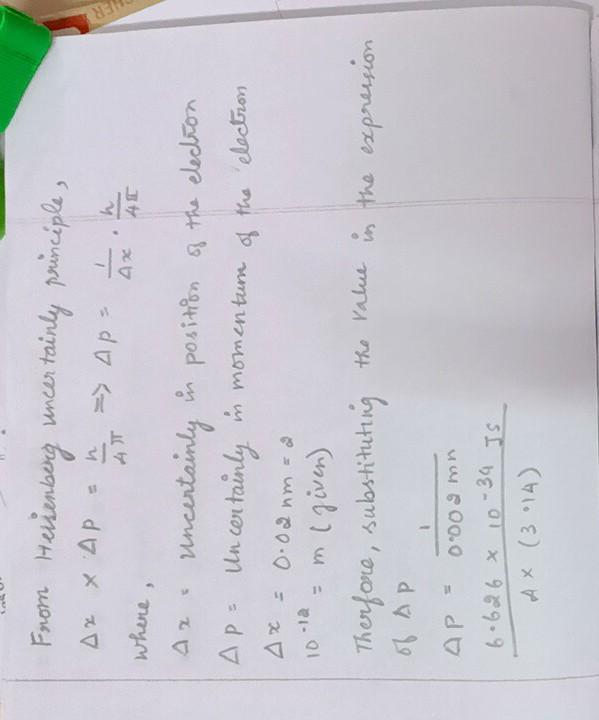 From Heisenberg uncertainly principle,
Δx × Δp = h/4π => Δp = 1/Δx · h/4π
where,
Δx = uncertainly in position of the electron
Δp = Uncertainly in momentum of the electron
Δx = 0.02 nm = 2
10-12 = m (given)
Therfore, substituting the value in the expression
of Δp
Δp = 1/0.002 mn
6.626 × 10-34 Js
4 × (3.14)